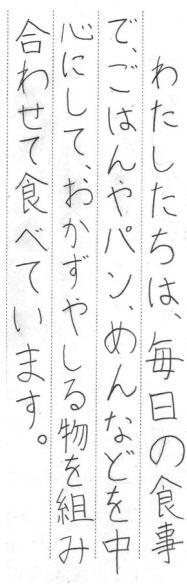 わたしたちは、毎日の食事
で、ごはんやパン、めんなどを中
心にして、おかずやしる物を組み
合わせて食べています。